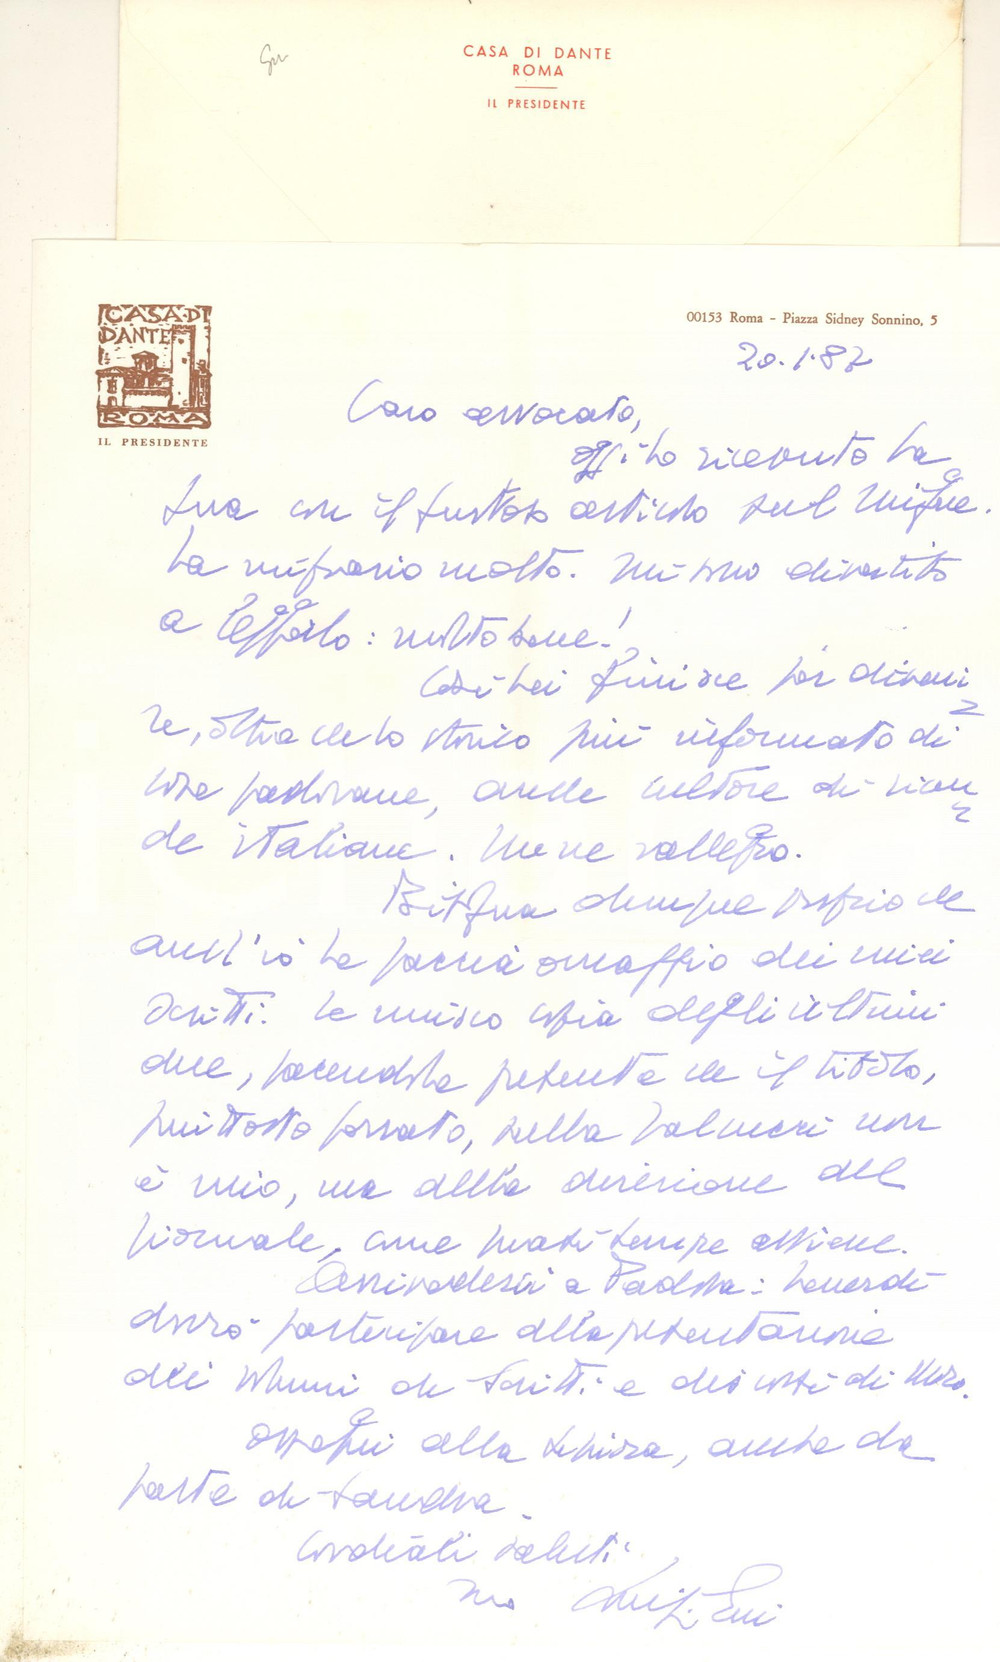 CASA DI DANTE
ROMA
IL PRESIDENTE
CASA DI
DANTE
ROMA
IL PRESIDENTE
00153 Roma - Piazza Sidney Sonnino, 5
20.1.87
Caro avvocato,
oggi ho ricevuto la
Sua con il gustoso articolo sul
La ringrazio molto. Mi sono divertito
a leggerlo: molto bene!
Così Lei finisce per diveni
re, oltre che lo storico più informato di
cose padovane, anche cultore di vicen
de italiane. Me ne rallegro.
Bisogna dunque proprio che
anch'io Le faccia omaggio dei miei
scritti. Le unisco copia degli ultimi
due, facendoLe presente che il titolo,
piuttosto forzato, sulla non
è mio, ma della direzione del
giornale, come quasi sempre avviene.
Arrivederci a Padova: venerdì
dovrò partecipare alla presentazione
dei volumi di Scritti e discorsi di Moro.
Ossequi alla Signora, anche da
parte di Sandra.
Cordiali saluti
Suo Gui